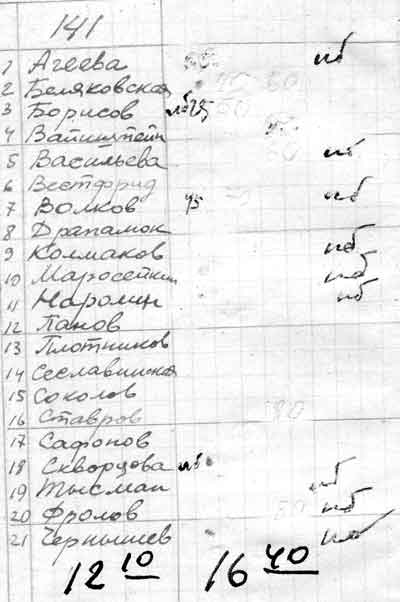 141
1 Агеева нб
2 Беляковская 45 60
3 Борисов нб 50
4 Вайнштейн
5 Васильева нб
6 Вестфрид
7 Волков 45 нб
8 Драпамон
9 Колмаков нб
10 Маросейкин нб
11 Наролин нб
12 Панов
13 Плотников
14 Сеславинская
15 Соколов
16 Ставров
17 Сафонов
18 Скворцова нб
19 Тысман нб
20 Фролов нб
21 Чернышев нб
12 10 16 40